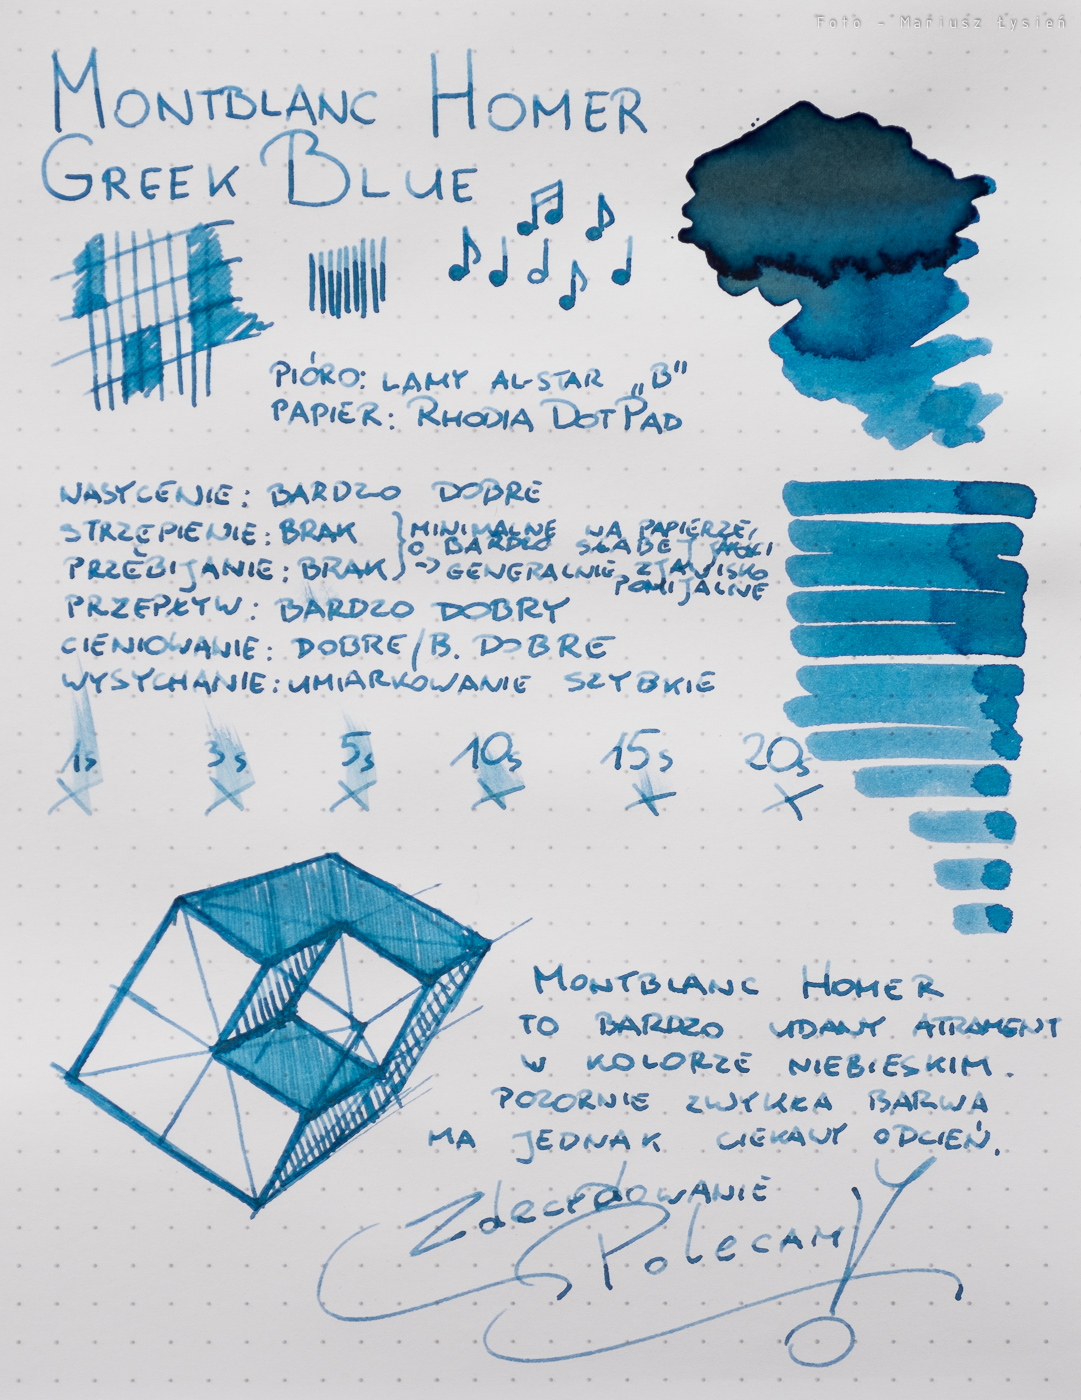 Foto - Mariusz Łysień
MONTBLANC HOMER
GREEK BLUE
PIÓRO: LAMY AL-STAR „B"
PAPIER: RHODIA DOTPAD
NASYCENIE: BARDZO DOBRE
STRZĘPIENIE: BRAK
PRZEBIJANIE: BRAK
} MINIMALNE NA PAPIERZE,
O BARDZO SŁABEJ JAKOŚCI
-> GENERALNIE ZJAWISKO
POMIJALNE
PRZEPŁYW: BARDZO DOBRY
CIENIOWANIE: DOBRE/B. DOBRE
WYSYCHANIE: UMIARKOWANIE SZYBKIE
1s 3s 5s 10s 15s 20s
MONTBLANC HOMER
TO BARDZO UDANY ATRAMENT
W KOLORZE NIEBIESKIM.
POZORNIE ZWYKŁA BARWA
MA JEDNAK CIEKAWY ODCIEŃ.
ZdecydowANIE
PolecAM!